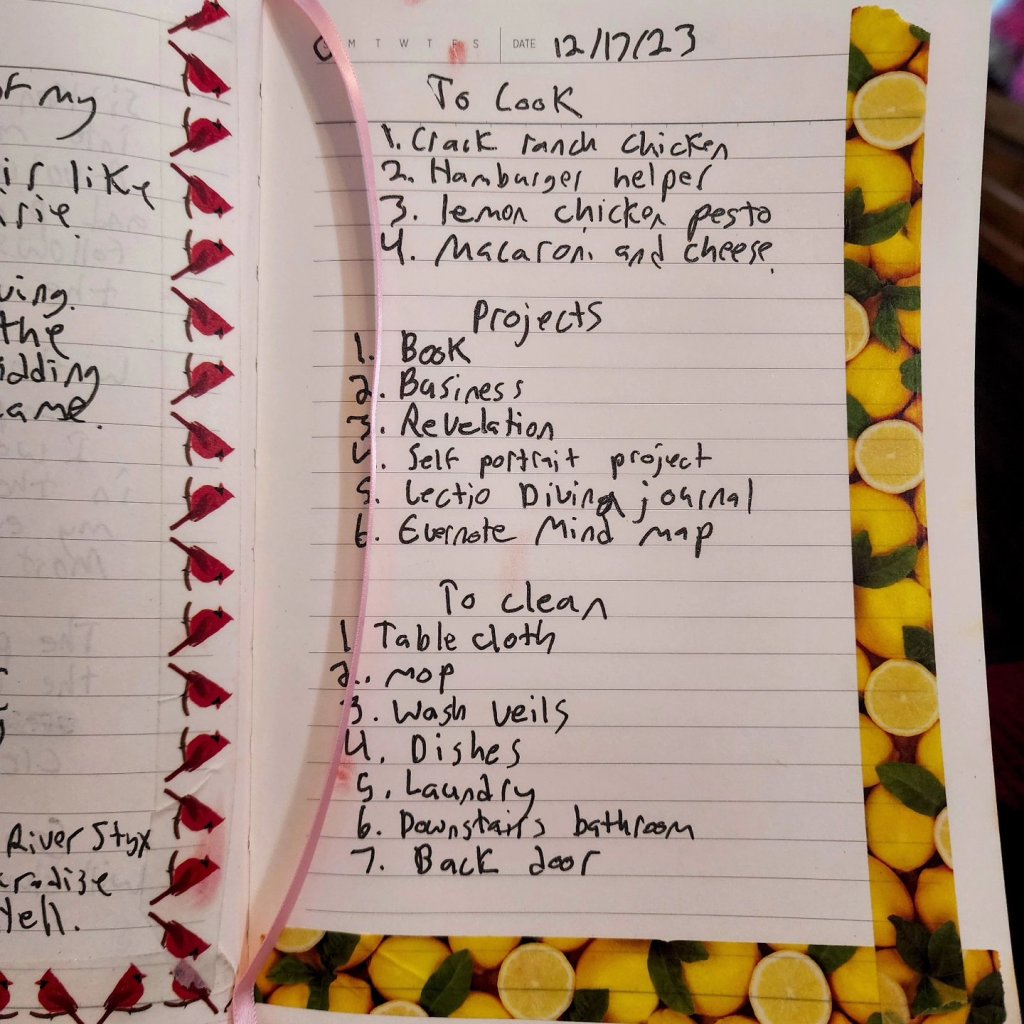 of my
like
ving.
the
idding
ame.
River Styx
radise
Hell.
S M T W T F S DATE 12/17/23
To Cook
1. Crack ranch chicken
2. Hamburger helper
3. lemon chicken pesto
4. Macaroni and cheese
Projects
1. Book
2. Business
3. Revelation
4. Self portrait project
5. Lectio Divina journal
6. Evernote Mind map
To clean
1 Table cloth
2.. mop
3. Wash veils
4. Dishes
5. Laundry
6. Downstairs bathroom
7. Back door